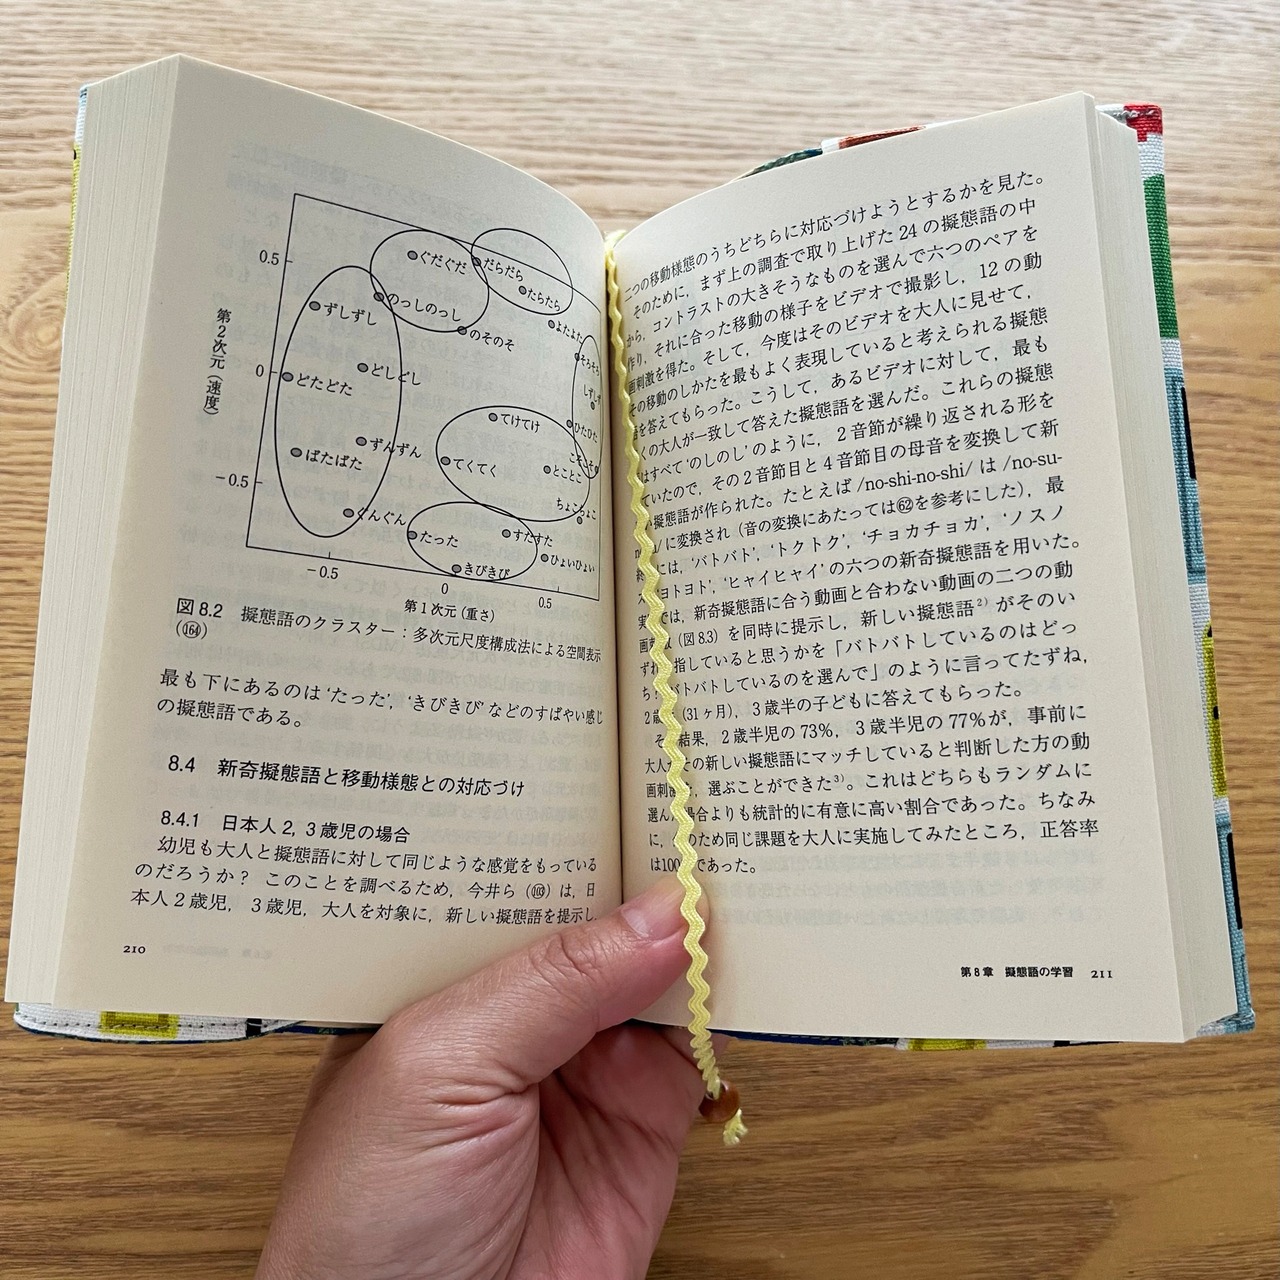 0.5
0
−0.5
第2次元(速度)
ぐだぐだ
だらだら
たらたら
ずしずし
のっしのっし
のそのそ
よたよた
どしどし
どたどた
てけてけ
ひたひた
ずんずん
ばたばた
てくてく
とことこ
ちょこちょこ
ぐんぐん
たった
すたすた
きびきび
ひょいひょい
−0.5
0
0.5
第1次元(重さ)
図8.2 擬態語のクラスター:多次元尺度構成法による空間表示
(164)
最も下にあるのは‘たった’,‘きびきび’などのすばやい感じ
の擬態語である。
8.4 新奇擬態語と移動様態との対応づけ
8.4.1 日本人2,3歳児の場合
幼児も大人と擬態語に対して同じような感覚をもっている
のだろうか? このことを調べるため,今井ら(103)は,日
本人2歳児,3歳児,大人を対象に,新しい擬態語を提示し,
210
二つの移動様態のうちどちらに対応づけようとするかを見た。
そのために,まず上の調査で取り上げた24の擬態語の中
から,コントラストの大きそうなものを選んで六つのペアを
作り,それに合った移動の様子をビデオで撮影し,12の動
画刺激を得た。そして,今度はそのビデオを大人に見せて,
その移動のしかたを最もよく表現していると考えられる擬態
語を答えてもらった。こうして,あるビデオに対して,最も
くの大人が一致して答えた擬態語を選んだ。これらの擬態
はすべて‘のしのし’のように,2音節が繰り返される形を
ていたので,その2音節目と4音節目の母音を変換して新
い擬態語が作られた。たとえば/no-shi-no-shi/は/no-su-
/に変換され(音の変換にあたっては62を参考にした),最
には,‘バトバト’,‘トクトク’,‘チョカチョカ’,‘ノスノ
ス’,ヨトヨト’,‘ヒャイヒャイ’の六つの新奇擬態語を用いた。
実では,新奇擬態語に合う動画と合わない動画の二つの動
画刺(図8.3)を同時に提示し,新しい擬態語2)がそのい
ずれ指していると思うかを「バトバトしているのはどっ
ち?バトバトしているのを選んで」のように言ってたずね,
2歳(31ヶ月),3歳半の子どもに答えてもらった。
そ結果,2歳半児の73%,3歳半児の77%が,事前に
大人がその新しい擬態語にマッチしていると判断した方の動
画刺,選ぶことができた3)。これはどちらもランダムに
選んだ場合よりも統計的に有意に高い割合であった。ちなみ
に,のため同じ課題を大人に実施してみたところ,正答率
は100であった。
第8章 擬態語の学習 211